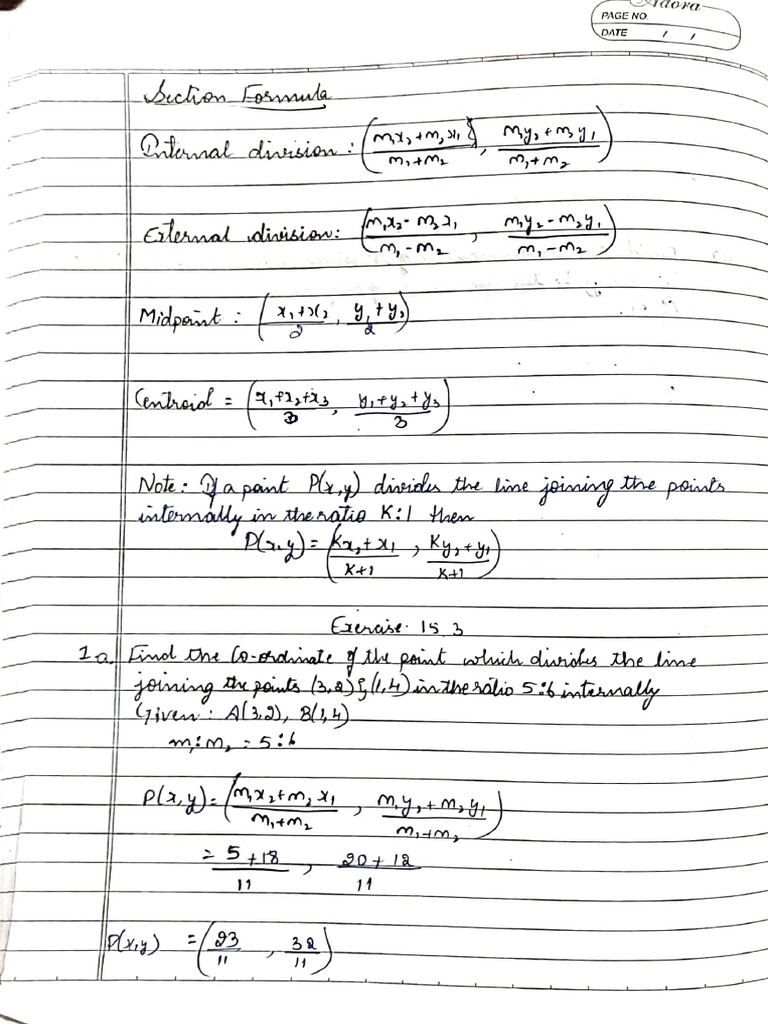 Adora
PAGE NO.
DATE / /
Section Formula
Internal division : (m₁x₂+m₂x₁/m₁+m₂ , m₁y₂+m₂y₁/m₁+m₂)
External division: (m₁x₂-m₂x₁/m₁-m₂ , m₁y₂-m₂y₁/m₁-m₂)
Midpoint : (x₁+x₂/2 , y₁+y₂/2)
Centroid = (x₁+x₂+x₃/3 , y₁+y₂+y₃/3)
Note: If a point P(x,y) divides the line joining the points
internally in the ratio K:1 then
P(x,y) = (Kx₂+x₁/K+1 , Ky₂+y₁/K+1)
Exercise 15.3
1a. Find the Co-ordinate of the point which divides the line
joining the points (3,2) & (1,4) in the ratio 5:6 internally
Given: A(3,2), B(1,4)
m₁:m₂ = 5:6
P(x,y) = (m₁x₂+m₂x₁/m₁+m₂ , m₁y₂+m₂y₁/m₁+m₂)
= 5+18/11 , 20+12/11
P(x,y) = (23/11 , 32/11)